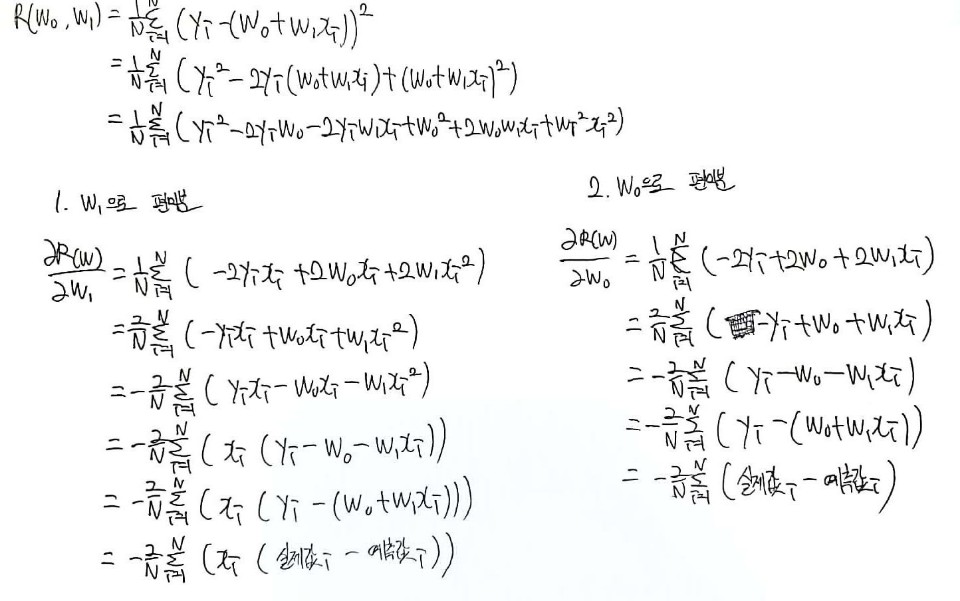 R(W₀, W₁) = 1/N Σᵢ₌₁ᴺ (yᵢ - (W₀ + W₁xᵢ))²
= 1/N Σᵢ₌₁ᴺ (yᵢ² - 2yᵢ(W₀+W₁xᵢ) + (W₀+W₁xᵢ)²)
= 1/N Σᵢ₌₁ᴺ (yᵢ² - 2yᵢW₀ - 2yᵢW₁xᵢ + W₀² + 2W₀W₁xᵢ + W₁²xᵢ²)
1. W₁으로 편미분
∂R(W)/∂W₁ = 1/N Σᵢ₌₁ᴺ ( -2yᵢxᵢ + 2W₀xᵢ + 2W₁xᵢ²)
= 2/N Σᵢ₌₁ᴺ (-yᵢxᵢ + W₀xᵢ + W₁xᵢ²)
= -2/N Σᵢ₌₁ᴺ (yᵢxᵢ - W₀xᵢ - W₁xᵢ²)
= -2/N Σᵢ₌₁ᴺ (xᵢ (yᵢ - W₀ - W₁xᵢ))
= -2/N Σᵢ₌₁ᴺ (xᵢ (yᵢ - (W₀+W₁xᵢ)))
= -2/N Σᵢ₌₁ᴺ (xᵢ (실제값ᵢ - 예측값ᵢ))
2. W₀으로 편미분
∂R(W)/∂W₀ = 1/N Σᵢ₌₁ᴺ (-2yᵢ + 2W₀ + 2W₁xᵢ)
= 2/N Σᵢ₌₁ᴺ (-yᵢ + W₀ + W₁xᵢ)
= -2/N Σᵢ₌₁ᴺ (yᵢ - W₀ - W₁xᵢ)
= -2/N Σᵢ₌₁ᴺ (yᵢ - (W₀+W₁xᵢ))
= -2/N Σᵢ₌₁ᴺ (실제값ᵢ - 예측값ᵢ)